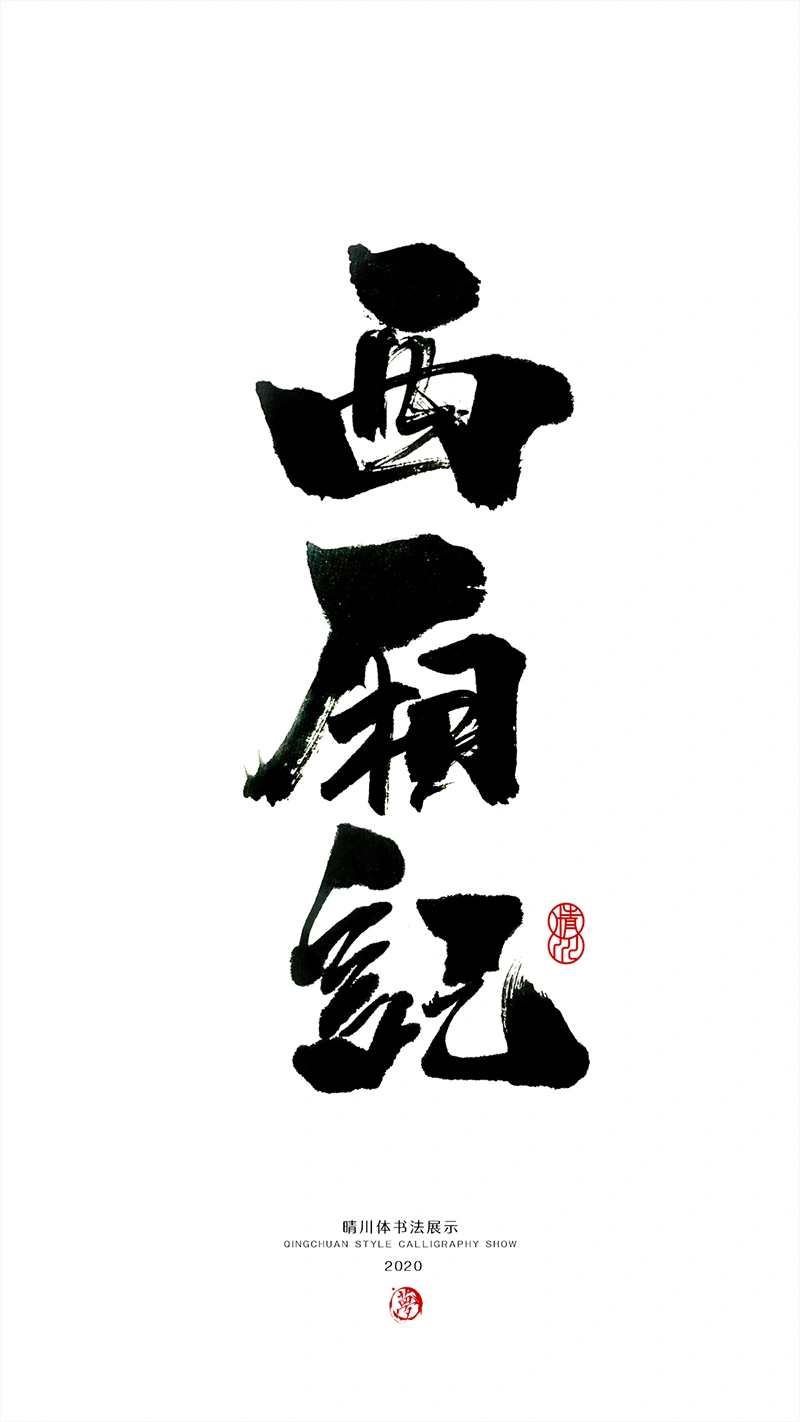 西厢記
晴川
晴川体书法展示
QINGCHUAN STYLE CALLIGRAPHY SHOW
2020
夢